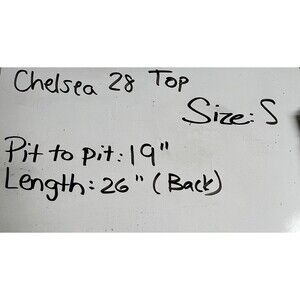 Chelsea 28 Top
Size: S
Pit to pit: 19"
Length: 26" (Back)